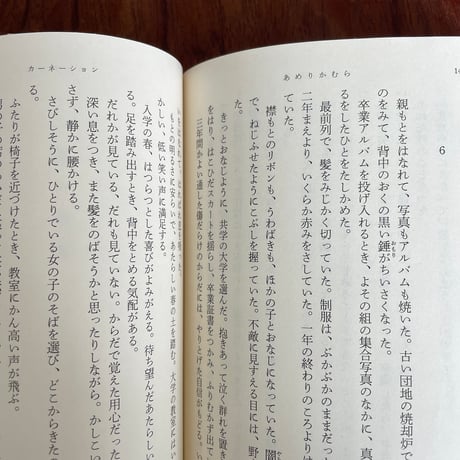 あめりかむら
6
親もとをはなれて、写真もアルバムも焼いた。古い団地の焼却炉で
のをみて、背中のおくの黒い錘がちいさくなった。
卒業アルバムを投げ入れるとき、よその組の集合写真のなかに、真
るをしたひとをたしかめた。
最前列で、髪をみじかく切っていた。制服は、ぶかぶかのままだった
二年まえより、いくらか赤みをさしていた。一年の終わりのころよりは
ていた。
襟もとのリボンも、うわばきも、ほかの子とおなじになっていた。闇
で、ねじふせたようにこぶしを握っていた。不敵に見すえる目には、野
きっとおなじように、共学の大学を選んだ。抱きあって泣く群れを置き
をはり、はこひだスカートを揺らし、卒業証書をつかみ、ふりむかず出て
三年間かよい通した傷だらけのからだには、やりとげた自信がもどる。
カーネーション
もとの明るさに安らいで、あたらしい春の土を踏む。大学の教室には
かしい、低い笑い声に満足する。
入学の春、はつらつとした喜びがよみがえる。待ち望んだあたらしい
る。足を踏み出すとき、背中をとめる気配がある。
だれかが見ている、だれも見ていない。からだで覚えた用心だった
深い息をつき、また髪をのばそうかと思ったりしながら。かしこ
さず、静かに腰かける。
さびしそうに、ひとりでいる女の子のそばを選び、どこからきた
る。
ふたりが椅子を近づけたとき、教室にかん高い声が飛ぶ。